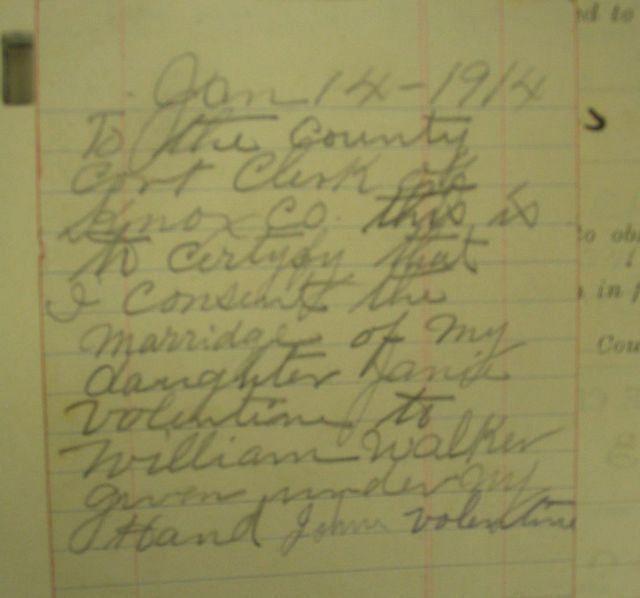 Jan 14-1914
To the County
Cort Clerk of
Knox Co. this is
to certyfy that
I consent the
Marridge of My
daughter Janie
Valentine to
William Walker
given under My
Hand John valentine
ed to
in
Cou